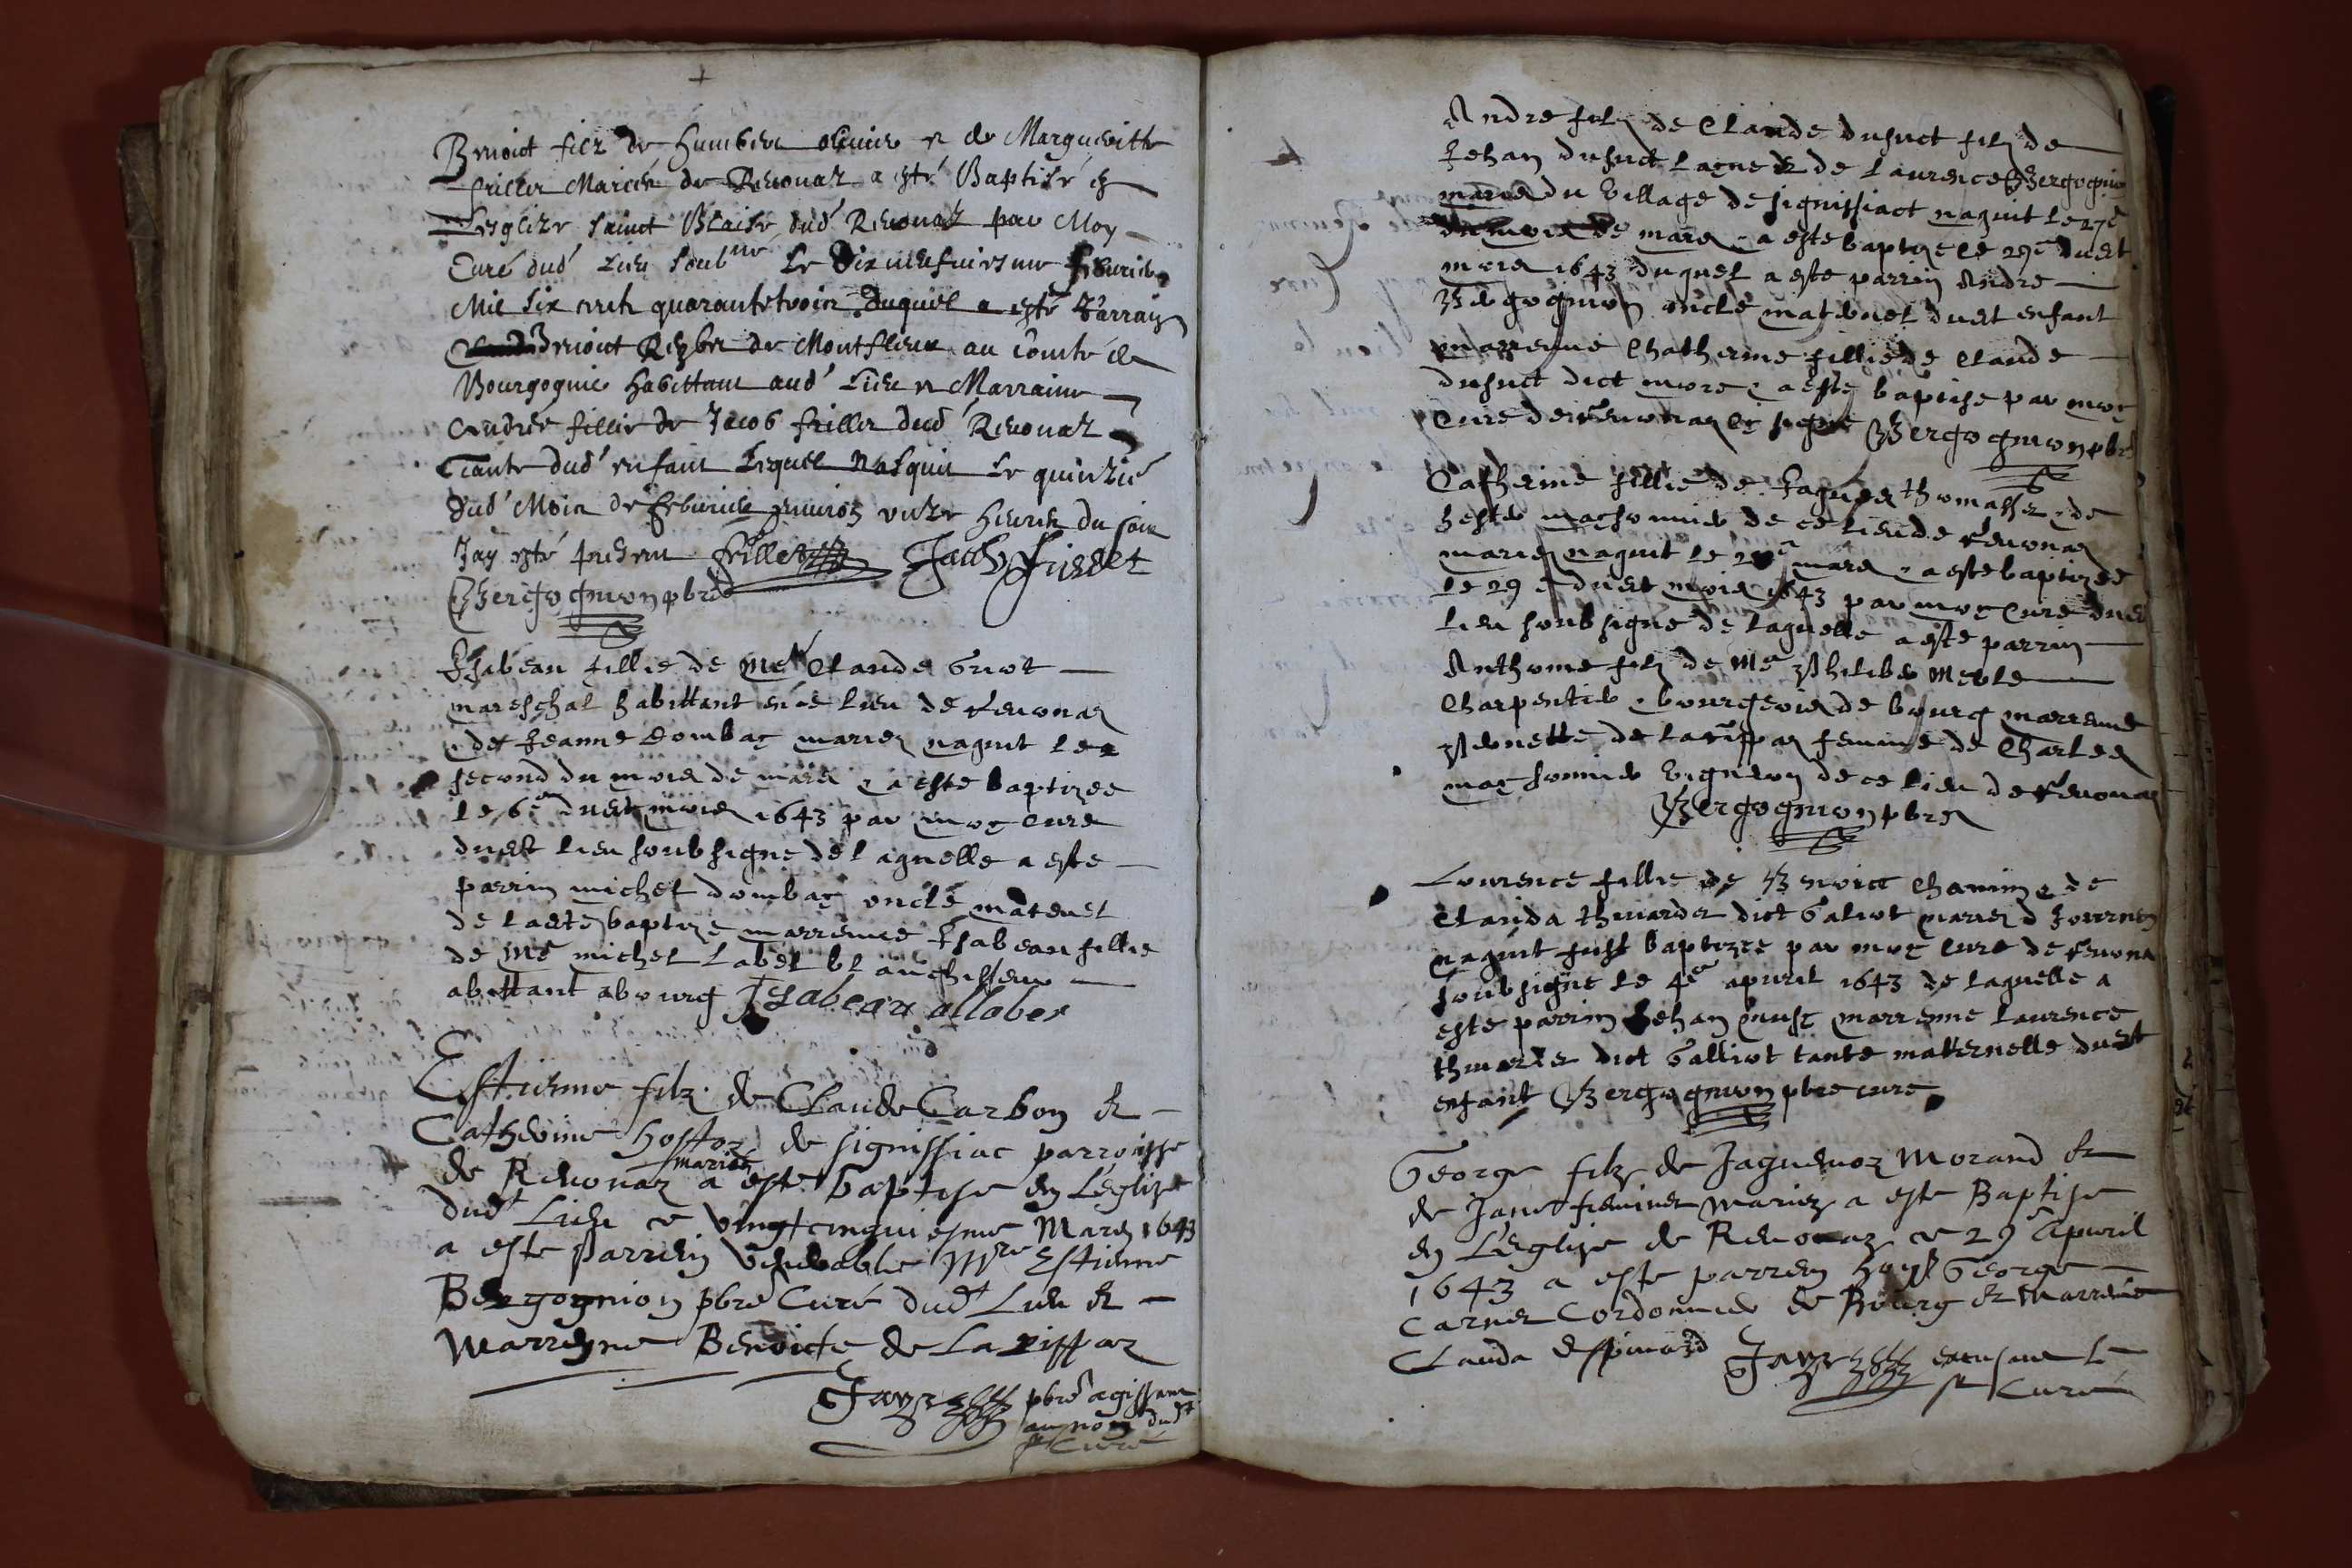 Benoict filz de Humbert olivier et de Margueritte
friller Mariés de Revonaz a esté Baptisé en
L'esglize sainct Blaise dud Revonaz par Moy
Curé dud Lieu soubné Le Dixneufuiesme feburier
Mil six cents quarantetrois Duquel a esté Parrain
Benoict de Montfleur au Comté de
Bourgognie habittant aud Lieu et Marraine
Andrée fillie de Jacob friller dud Revonaz
Tante dud enfant Lequel Nasquit Le quinzie
Dud Mois de feburier environ unze heures du soir
Jay esté present friller Jacob friller
Bergognion pbre
Isabeau fillie de me Claude Griot
mareschal habittant en ce lieu de Revonaz
et de Jeanne dombac maries naquit le
second du mois de mars et a este baptizee
le 6e dudt mois 1643 par moy cure
dudt lieu soubsigne de laquelle a este
parrin michel dombac oncle maternel
de ladte baptize marrenne Isabeau fillie
de me michel labet blanchisseur
abittant a bourg Isabeau allabet
Estienne filz de Claude Carbon et
Catherine hostoz de signissiac parroisse
mariés
de Revonaz a este baptise en Leglize
dudt Lieu ce vingtcinquiesme Mars 1643
a este parrein venerable Mre Estienne
Bergognion pbre Curé dudt Lieu et
Marreyne Benoicte de Lariffaz
Jayr pbre agissant
au nom dudt
sr Curé
Andre filz de Claude dusuct filz de
Jehan dusuct lacne et de Laurence Bergognion
maries du village de signissiact naquit le 27e
de mars et a este baptize le 29e dudt
mois 1643 duquel a este parrin Andre
Bergognion oncle maternel dudt enfant
marrenne Chatherine fillie de Claude
dusuct dict more et a este baptise par moy
Cure de Revonaz cy signe Bergognion pbre
Catherine fillie de Jaques thomasset et de
hester massonnier de ce lieu de Revonaz
maries naquit le mars et a este baptizee
le 29e dudt mois 1643 par moy Cure dudt
lieu soubsigne de laquelle a este parrin
Anthoine filz de me Philiber Merle
Charpentier et bourgeois de bourg marrenne
Pernette de lariffaz femme de Charles
massonnier vigneron de ce lieu de Revonaz
Bergognion pbre
Lourence fillie de Benoict Chanin et de
Clauda thuardet dict Galiot maries d Journens
naquit fust baptizee par moy Cure de Revona
soubsigne le 4e apvril 1643 de laquelle a
este parrin Jehan musy marrenne Laurence
thuardet dict Galliot tante maternelle dudt
enfant Bergognion pbre cure
George filz de Jaquemoz Morand et
de Jane feminet mariez a este Baptise
en L'eglize de Revonaz ce 29e Apvril
1643 a este parrein George
Carnet Cordonnier de Bourg et Marreine
Clauda Espinard Jayr excusant le
sr Curé